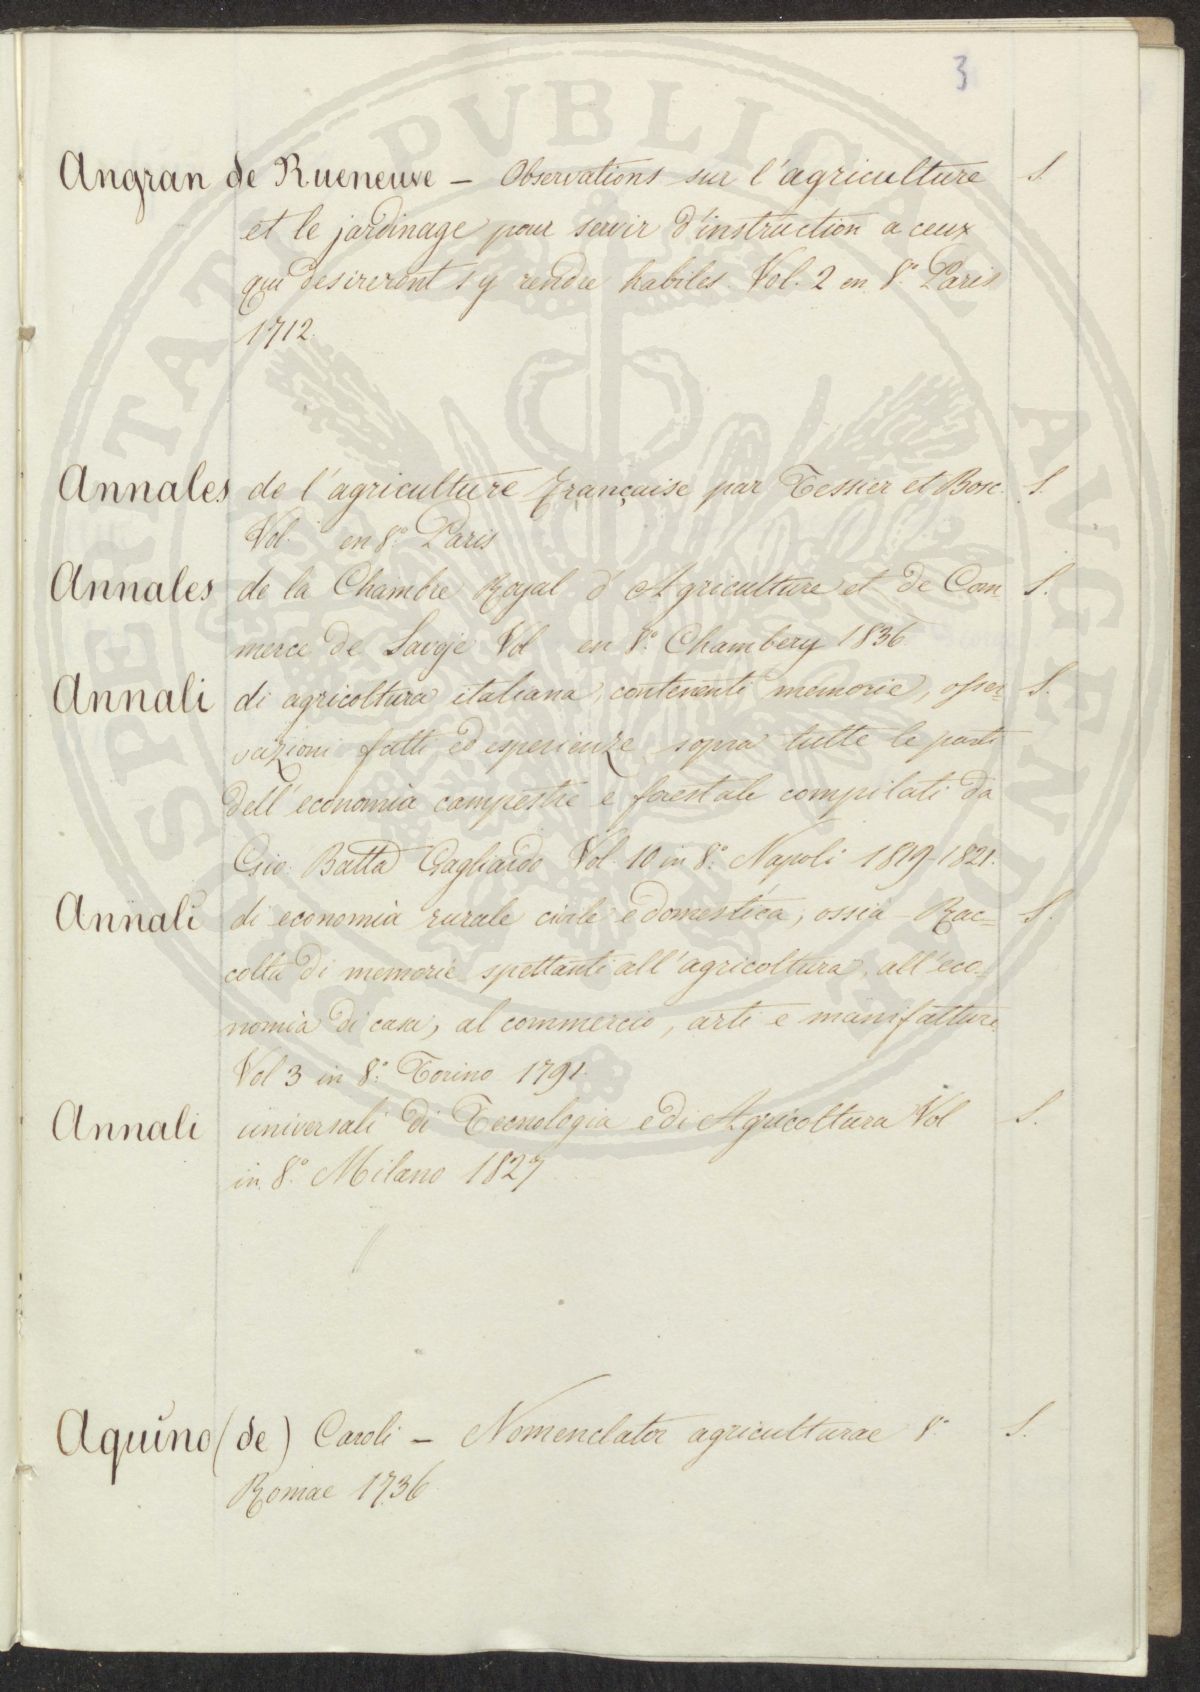 3
Angran de Rueneuve – Observations sur l'agriculture S.
et le jardinage pour servir d'instruction a ceux
qui desireront s'y rendre habiles. Vol. 2 en 8.° Paris
1712.
Annales de l'agriculture française par Tessier et Bosc. S.
Vol. en 8.° Paris
Annales de la Chambre Royal d'Agriculture et de Com- S.
merce de Savoje Vol en 8.° Chambery 1836
Annali di agricoltura italiana, contenenti memorie, osser- S.
vazioni fatti, ed esperienze sopra tutte le parti
dell'economia campestre e forestale compilati da
Gio. Batta Gagliardo Vol. 10 in 8.° Napoli 1819-1821.
Annali di economia rurale civile e domestica, ossia Rac- S.
colta di memorie spettanti all'agricoltura, all'eco-
nomia di casa, al commercio, arti e manifatture.
Vol 3 in 8.° Torino 1791.
Annali universali di Tecnologia e di Agricoltura Vol S.
in 8.° Milano 1827
Aquino (de) Caroli – Nomenclator agriculturae 8.° S.
Romae 1736
PUBLICA AUGENDAE PROSPERITATI